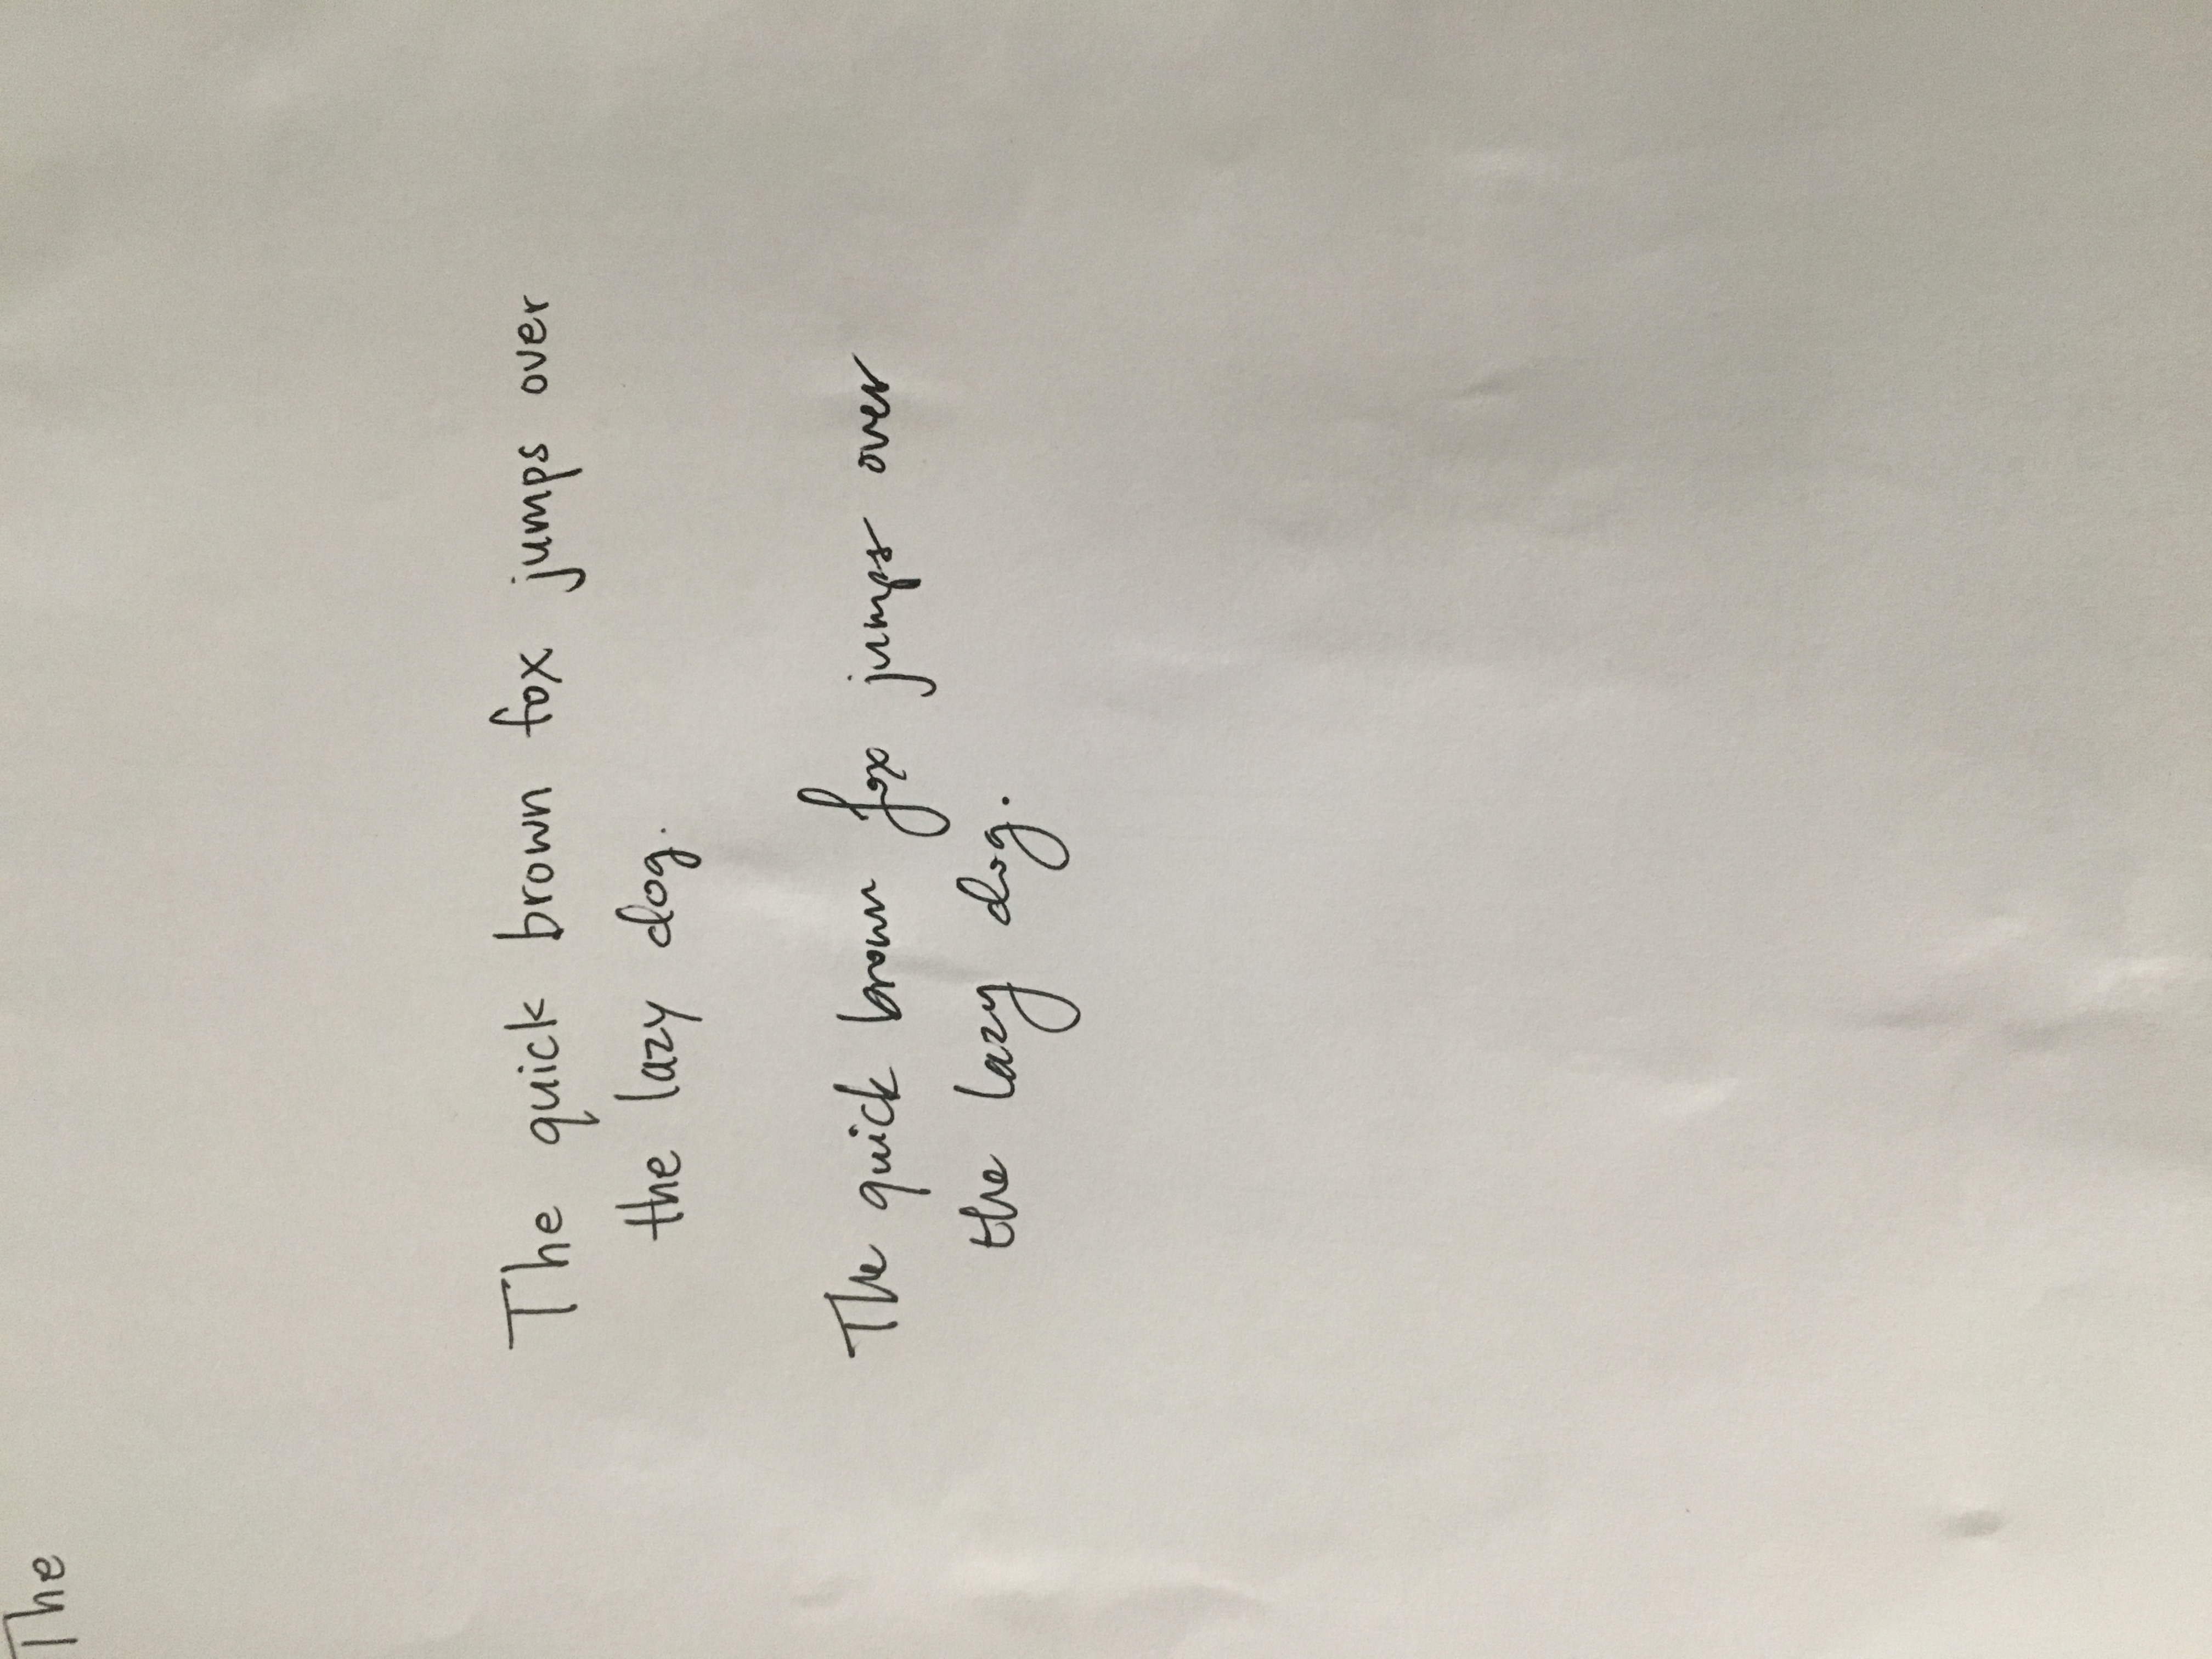 The
The quick brown fox jumps over
the lazy dog.
The quick brown fox jumps over
the lazy dog.